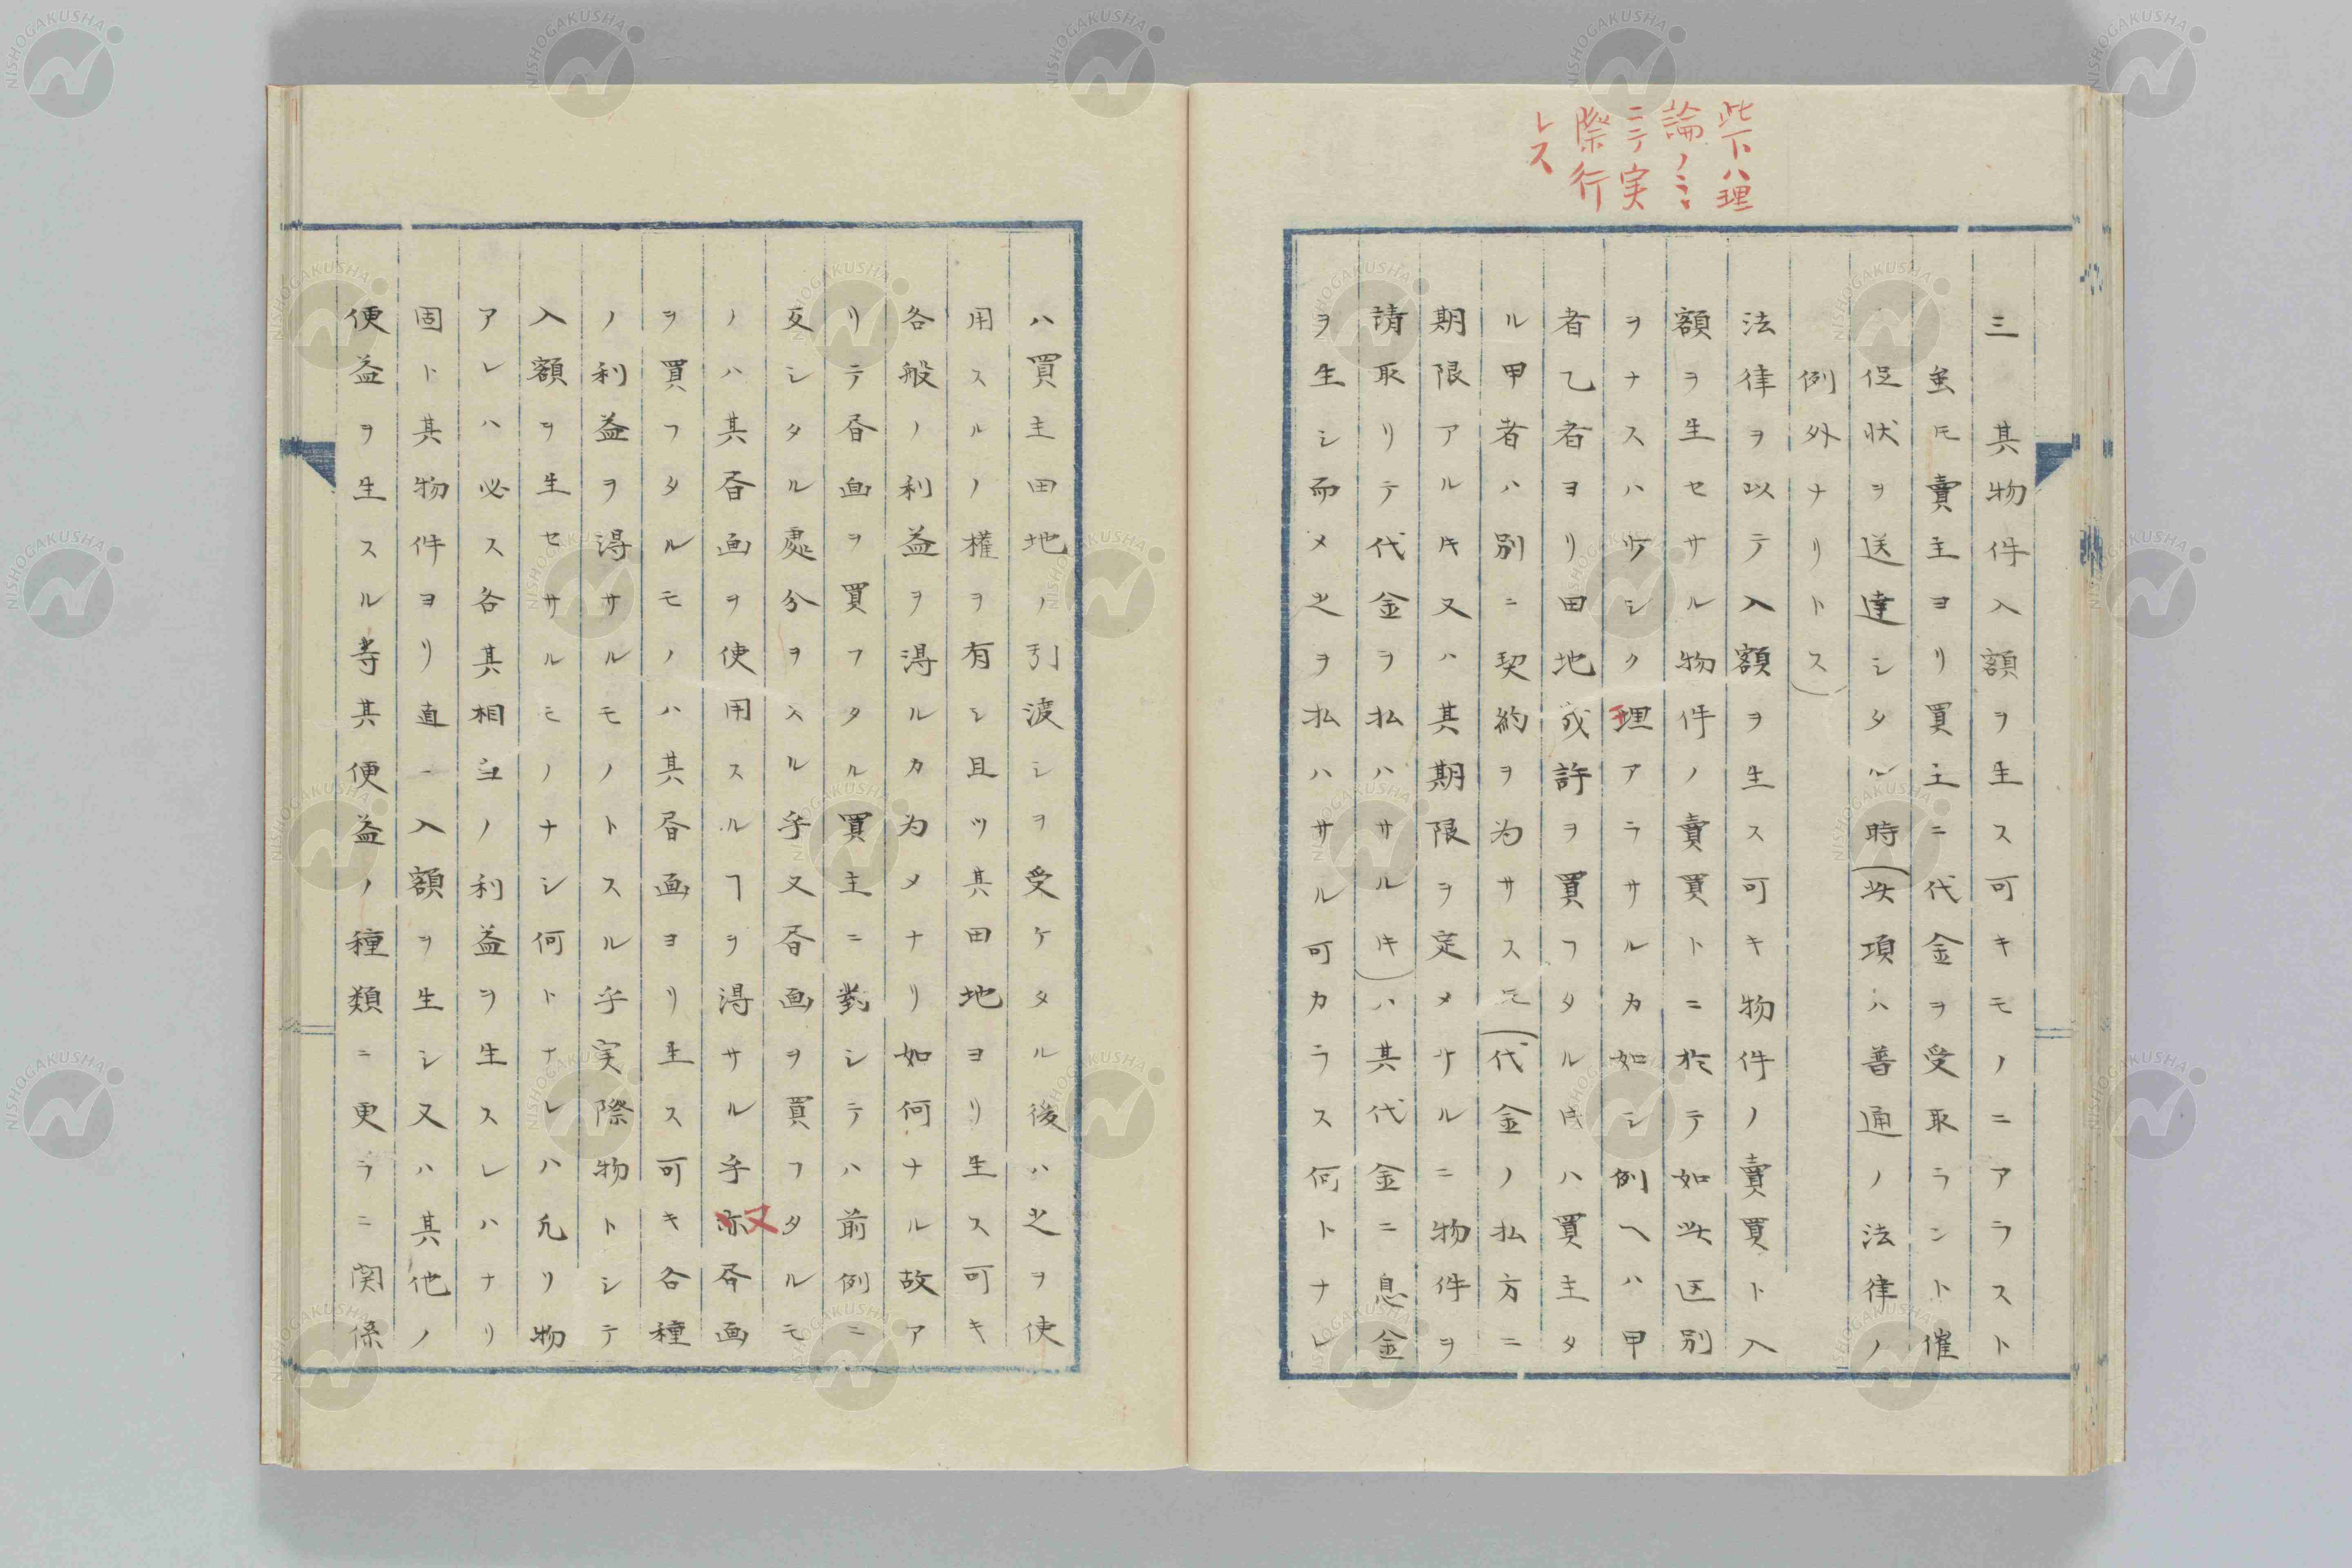 此下ハ理
論ノミ
ニテ実
際行
レス
三　其物件入額ヲ生ス可キモノニアラスト
虽𪜈賣主ヨリ買主ニ代金ヲ受取ラント催
促状ヲ送達シタル時（此項ハ普通ノ法律ノ
例外ナリトス）
法律ヲ以テ入額ヲ生ス可キ物件ノ賣買ト入
額ヲ生セサル物件ノ賣買トニ於テ如此区別
ヲナスハ少シク理アラサルカ如シ例ヘハ甲
者乙者ヨリ田地或許ヲ買フタル時ハ買主タ
ル甲者ハ別ニ契約ヲ為サス𪜈（代金ノ払方ニ
期限アルキ又ハ其期限ヲ定メサルニ物件ヲ
請取リテ代金ヲ払ハサルキ）ハ其代金ニ息金
ヲ生シ而メ之ヲ払ハサル可カラス何トナレ
ハ買主田地ノ引渡シヲ受ケタル後ハ之ヲ使
用スルノ權ヲ有シ且ツ其田地ヨリ生ス可キ
各般ノ利益ヲ得ルカ为メナリ如何ナル故ア
リテ昏画ヲ買フタル買主ニ對シテハ前例ニ
反シタル處分ヲスル乎又昏画ヲ買フタルモ
ノハ其昏画ヲ使用スルヿヲ得サル乎又亦昏画
ヲ買フタルモノハ其昏画ヨリ生ス可キ各種
ノ利益ヲ得サルモノトスル乎実際物トシテ
入額ヲ生セサルモノナシ何トナレハ凢リ物
アレハ必ス各其相当ノ利益ヲ生スレハナリ
固ト其物件ヨリ直ニ入額ヲ生シ又ハ其他ノ
便益ヲ生スル等其便益ノ種類ニ更ラニ関係